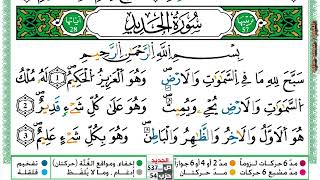 سُورَةُ الْحَدِيدِ
ترتيبها 57
آياتها 28
بِسْمِ اللَّهِ الرَّحْمَٰنِ الرَّحِيمِ
سَبَّحَ لِلَّهِ مَا فِي السَّمَٰوَٰتِ وَالْأَرْضِ ۖ وَهُوَ الْعَزِيزُ الْحَكِيمُ ١ لَهُ مُلْكُ
السَّمَٰوَٰتِ وَالْأَرْضِ ۖ يُحْيِي وَيُمِيتُ ۖ وَهُوَ عَلَىٰ كُلِّ شَيْءٍ قَدِيرٌ ٢
هُوَ الْأَوَّلُ وَالْآخِرُ وَالظَّٰهِرُ وَالْبَاطِنُ ۖ وَهُوَ بِكُلِّ شَيْءٍ عَلِيمٌ ٣
مدّ 6 حركات لزوماً مدّ 2 أو 4 أو 6 جوازاً الحديد 537 إخفاء، ومواقع الغُنَّة (حركتان) تفخيم
مدّ مشبع 6 حركات مدّ حركتان حزب 54 إدغام، وما لا يُلفَظ قلقلة